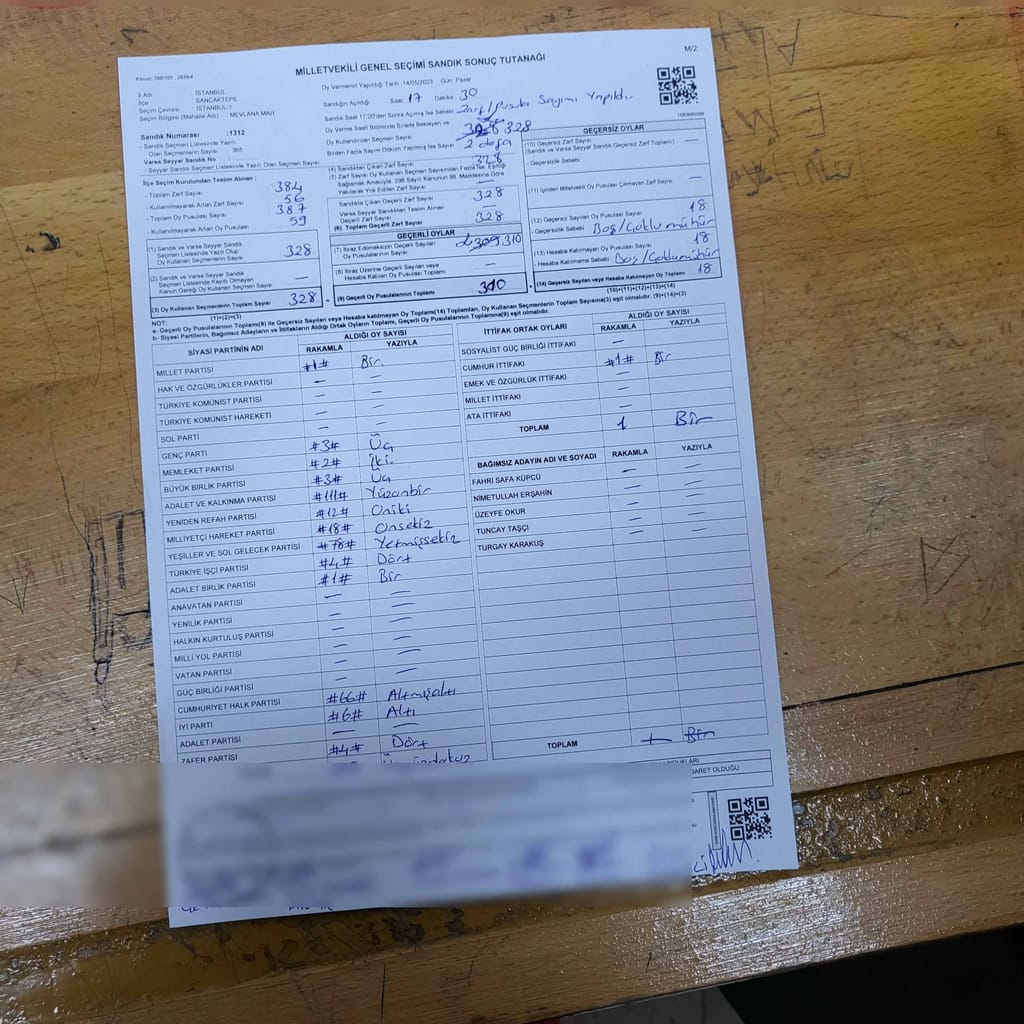 Kanun: 298/105 ; 2839/4
M/2
MİLLETVEKİLİ GENEL SEÇİMİ SANDIK SONUÇ TUTANAĞI
Oy Vermenin Yapıldığı Tarih :14/05/2023 Gün :Pazar
İl Adı : İSTANBUL
İlçe : SANCAKTEPE
Seçim Çevresi : İSTANBUL-1
Seçim Bölgesi (Mahalle Adı) : MEVLANA MAH.
Sandık Numarası :1312
- Sandık Seçmen Listesinde Yazılı Olan Seçmenlerin Sayısı : 365
Varsa Seyyar Sandık No :
- Seyyar Sandık Seçmen Listesinde Yazılı Olan Seçmen Sayısı:
Sandığın Açıldığı Saat: 17 Dakika: 30
Sandık Saat 17.00'den Sonra Açılmış İse Sebebi: Zarf/Pusula Sayımı Yapıldı.
Oy Verme Saati Bitiminde Sırada Bekleyen ve Oy Kullandırılan Seçmen Sayısı 328
Birden Fazla Sayım Döküm Yapılmış İse Sayısı 2 defa
İlçe Seçim Kurulundan Teslim Alınan :
- Toplam Zarf Sayısı 384
- Kullanılmayarak Artan Zarf Sayısı 56
- Toplam Oy Pusulası Sayısı 387
- Kullanılmayarak Artan Oy Pusulası 59
(1) Sandık ve Varsa Seyyar Sandık Seçmen Listesinde Yazılı Olup Oy Kullanan Seçmen Sayısı 328
(2) Sandık ve Varsa Seyyar Sandık Seçmen Listesinde Kayıtlı Olmayan Kanun Gereği Oy Kullanan Seçmen Sayısı —
(3) Oy Kullanan Seçmenlerin Toplam Sayısı 328
(1)+(2)=(3)
(4) Sandıktan Çıkan Zarf Sayısı 328
(5) Zarf Sayısı Oy Kullanan Seçmen Sayısından Fazla İse, Eşitliği Sağlamak Amacıyla, 298 Sayılı Kanunun 98. Maddesine Göre Yakılarak Yok Edilen Zarf Sayısı —
Sandıkta Çıkan Geçerli Zarf Sayısı 328
Varsa Seyyar Sandıktan Teslim Alınan Geçerli Zarf Sayısı —
(6) Toplam Geçerli Zarf Sayısı 328
GEÇERLİ OYLAR
(7) İtiraz Edilmeksizin Geçerli Sayılan Oy Pusulalarının Sayısı 310
(8) İtiraz Üzerine Geçerli Sayılan veya Hesaba Katılan Oy Pusulası Toplamı —
(9) Geçerli Oy Pusulalarının Toplamı 310
GEÇERSİZ OYLAR
(10) Geçersiz Zarf Sayısı
(Sandık ve Varsa Seyyar Sandık Geçersiz Zarf Toplamı) —
-Geçersizlik Sebebi
(11) İçinden Milletvekili Oy Pusulası Çıkmayan Zarf Sayısı —
(12) Geçersiz Sayılan Oy Pusulası Sayısı 18
- Geçersizlik Sebebi Boş/Çoklu mühür
(13) Hesaba Katılmayan Oy Pusulası Sayısı 18
- Hesaba Katılmama Sebebi Boş/Çoklumühür
(14) Geçersiz Sayılan veya Hesaba Katılmayan Oy Toplamı 18
10)+(11)+(12)+(13)=(14)
NOT:
a- Geçerli Oy Pusulalarının Toplamı(9) ile Geçersiz Sayılan veya Hesaba Katılmayan Oy Toplamı(14) Toplamları, Oy Kullanan Seçmenlerin Toplam Sayısına(3) eşit olmalıdır. (9)+(14)=(3)
b- Siyasi Partilerin, Bağımsız Adayların ve İttifakların Aldığı Ortak Oyların Toplamı, Geçerli Oy Pusulalarının Toplamına(9) eşit olmalıdır.
SİYASİ PARTİNİN ADI ALDIĞI OY SAYISI
RAKAMLA YAZIYLA
MİLLET PARTİSİ #1# Bir.
HAK VE ÖZGÜRLÜKLER PARTİSİ — —
TÜRKİYE KOMÜNİST PARTİSİ — —
TÜRKİYE KOMÜNİST HAREKETİ — —
SOL PARTİ — —
GENÇ PARTİ #3# Üç
MEMLEKET PARTİSİ #2# İki.
BÜYÜK BİRLİK PARTİSİ #3# Üç
ADALET VE KALKINMA PARTİSİ #111# Yüzonbir
YENİDEN REFAH PARTİSİ #12# Oniki
MİLLİYETÇİ HAREKET PARTİSİ #18# Onsekiz
YEŞİLLER VE SOL GELECEK PARTİSİ #78# Yetmişsekiz
TÜRKİYE İŞÇİ PARTİSİ #4# Dört
ADALET BİRLİK PARTİSİ #1# Bir
ANAVATAN PARTİSİ — —
YENİLİK PARTİSİ — —
HALKIN KURTULUŞ PARTİSİ — —
MİLLİ YOL PARTİSİ — —
VATAN PARTİSİ — —
GÜÇ BİRLİĞİ PARTİSİ — —
CUMHURİYET HALK PARTİSİ #66# Altmışaltı
İYİ PARTİ #6# Altı
ADALET PARTİSİ — —
ZAFER PARTİSİ #4# Dört
İTTİFAK ORTAK OYLARI ALDIĞI OY SAYISI
RAKAMLA YAZIYLA
SOSYALİST GÜÇ BİRLİĞİ İTTİFAKI —
CUMHUR İTTİFAKI #1# Bir
EMEK VE ÖZGÜRLÜK İTTİFAKI —
MİLLET İTTİFAKI —
ATA İTTİFAKI —
TOPLAM 1 Bir
BAĞIMSIZ ADAYIN ADI VE SOYADI RAKAMLA YAZIYLA
FAHRİ SAFA KÜPCÜ — —
NİMETULLAH ERŞAHİN — —
ÜZEYFE OKUR — —
TUNCAY TAŞÇI — —
TURGAY KARAKUŞ
TOPLAM Bir